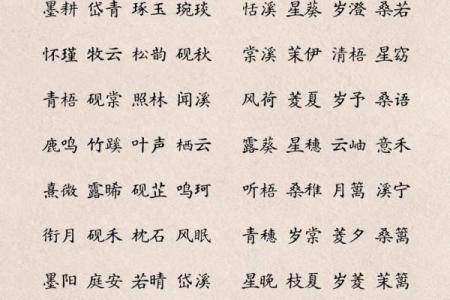 墨耕 岱青 琢玉 琬琰 恬溪 星葵 岁澄 桑若
怀瑾 牧云 松韵 砚秋 棠溪 茉伊 清梧 星窈
青梧 砚棠 照林 闻溪 风荷 菱夏 岁予 桑语
鹿鸣 竹蹊 叶声 栖云 露葵 星穗 云岫 意禾
熹微 露晞 砚芷 鸣珂 听梧 桑稚 月篱 溪宁
衔月 砚禾 枕石 风眠 青穗 岁棠 菱夕 桑篱
墨阳 庭安 若晴 岱溪 星晚 枝夏 岁菱 茉篱